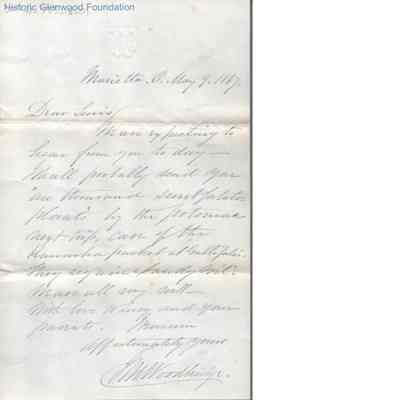 Historic Glenwood Foundation
Marietta, O. May 9, 1867.
Dear Lewis,
We are expecting to
hear from you to day —
I shall probably send you
"one thousand sweet potatoe
plants" by the potomac
next trip, care of the
Kanawha packet at Gallipolis.
They require sandy soil.
We are all very well —
With love to and your
parents. I remain
Affectionately yours
Woodbridge.